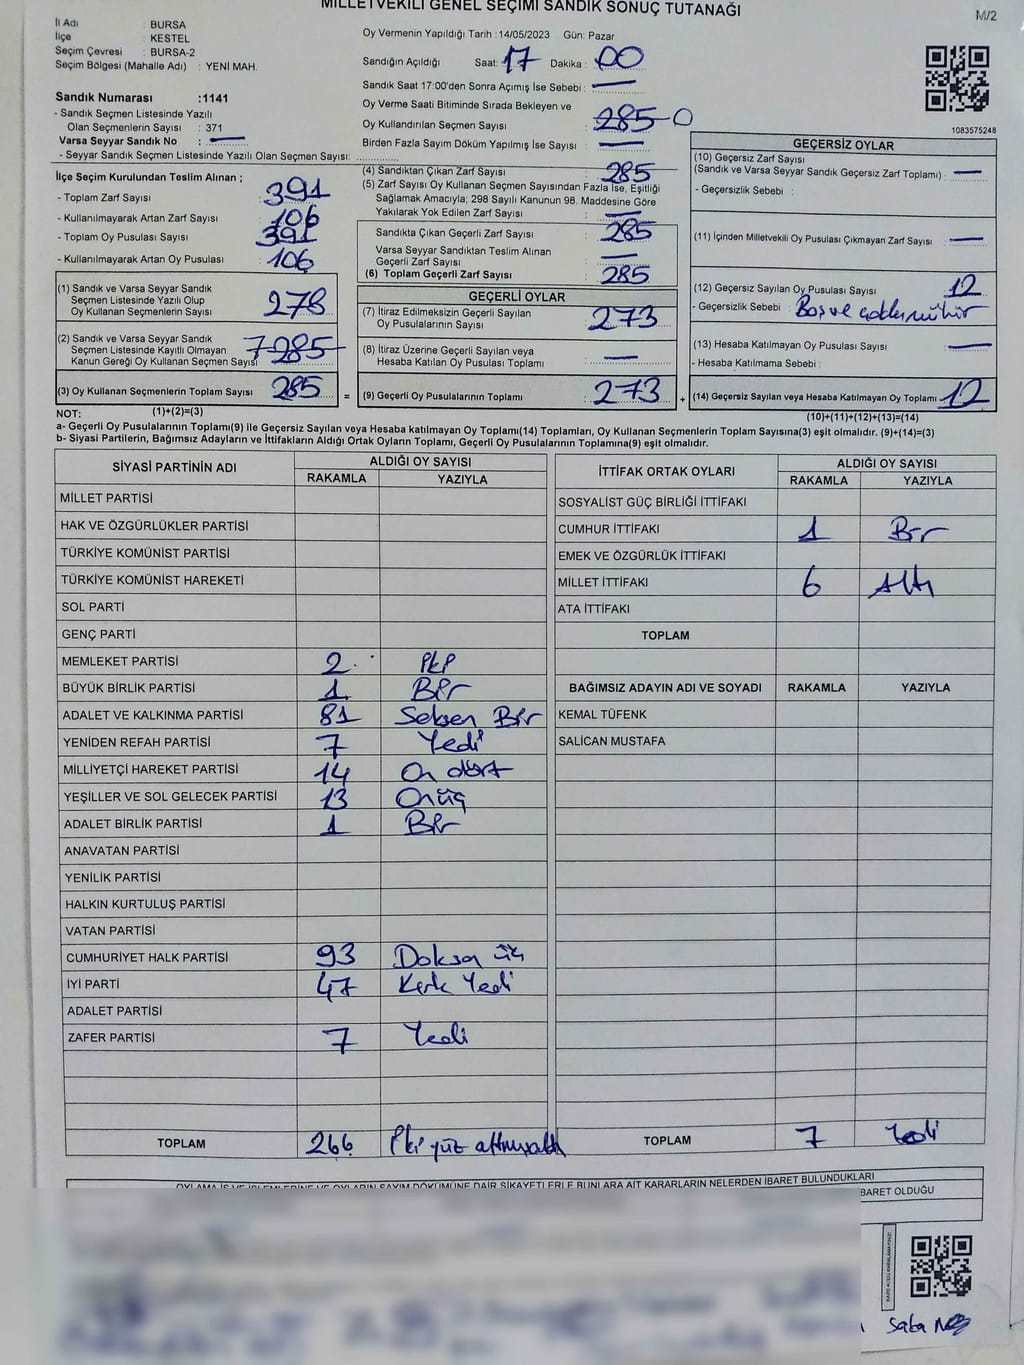 MİLLETVEKİLİ GENEL SEÇİMİ SANDIK SONUÇ TUTANAĞI
M/2
İl Adı : BURSA
İlçe : KESTEL
Seçim Çevresi : BURSA-2
Seçim Bölgesi (Mahalle Adı) : YENİ MAH.
Oy Vermenin Yapıldığı Tarih :14/05/2023 Gün: Pazar
Sandığın Açıldığı Saat: 17 Dakika : 00
Sandık Saat 17:00'den Sonra Açımış İse Sebebi :
Oy Verme Saati Bitiminde Sırada Bekleyen ve
Oy Kullandırılan Seçmen Sayısı : 285 0
Birden Fazla Sayım Döküm Yapılmış İse Sayısı :
Sandık Numarası :1141
- Sandık Seçmen Listesinde Yazılı
Olan Seçmenlerin Sayısı : 371
Varsa Seyyar Sandık No :
- Seyyar Sandık Seçmen Listesinde Yazılı Olan Seçmen Sayısı:
1083575248
İlçe Seçim Kurulundan Teslim Alınan ;
- Toplam Zarf Sayısı : 391
- Kullanılmayarak Artan Zarf Sayısı : 106
- Toplam Oy Pusulası Sayısı : 391
- Kullanılmayarak Artan Oy Pusulası : 106
(1) Sandık ve Varsa Seyyar Sandık
Seçmen Listesinde Yazılı Olup
Oy Kullanan Seçmenlerin Sayısı : 278
(2) Sandık ve Varsa Seyyar Sandık
Seçmen Listesinde Kayıtlı Olmayan
Kanun Gereği Oy Kullanan Seçmen Sayısı : 7 285
(3) Oy Kullanan Seçmenlerin Toplam Sayısı : 285
(4) Sandıktan Çıkan Zarf Sayısı : 285
(5) Zarf Sayısı Oy Kullanan Seçmen Sayısından Fazla İse, Eşitliği
Sağlamak Amacıyla; 298 Sayılı Kanunun 98. Maddesine Göre
Yakılarak Yok Edilen Zarf Sayısı :
Sandıkta Çıkan Geçerli Zarf Sayısı : 285
Varsa Seyyar Sandıktan Teslim Alınan
Geçerli Zarf Sayısı :
(6) Toplam Geçerli Zarf Sayısı : 285
GEÇERLİ OYLAR
(7) İtiraz Edilmeksizin Geçerli Sayılan
Oy Pusulalarının Sayısı : 273
(8) İtiraz Üzerine Geçerli Sayılan veya
Hesaba Katılan Oy Pusulası Toplamı :
= (9) Geçerli Oy Pusulalarının Toplamı : 273 +
GEÇERSİZ OYLAR
(10) Geçersiz Zarf Sayısı
(Sandık ve Varsa Seyyar Sandık Geçersiz Zarf Toplamı) :
- Geçersizlik Sebebi :
(11) İçinden Milletvekili Oy Pusulası Çıkmayan Zarf Sayısı :
(12) Geçersiz Sayılan Oy Pusulası Sayısı : 12
- Geçersizlik Sebebi : Boş ve
(13) Hesaba Katılmayan Oy Pusulası Sayısı :
- Hesaba Katılmama Sebebi :
(14) Geçersiz Sayılan veya Hesaba Katılmayan Oy Toplamı : 12
NOT: (1)+(2)=(3)
(10)+(11)+(12)+(13)=(14)
a- Geçerli Oy Pusulalarının Toplamı(9) ile Geçersiz Sayılan veya Hesaba Katılmayan Oy Toplamı(14) Toplamları, Oy Kullanan Seçmenlerin Toplam Sayısına(3) eşit olmalıdır. (9)+(14)=(3)
b- Siyasi Partilerin, Bağımsız Adayların ve İttifakların Aldığı Ortak Oyların Toplamı, Geçerli Oy Pusulalarının Toplamına(9) eşit olmalıdır.
SİYASİ PARTİNİN ADI ALDIĞI OY SAYISI
RAKAMLA YAZIYLA
MİLLET PARTİSİ
HAK VE ÖZGÜRLÜKLER PARTİSİ
TÜRKİYE KOMÜNİST PARTİSİ
TÜRKİYE KOMÜNİST HAREKETİ
SOL PARTİ
GENÇ PARTİ
MEMLEKET PARTİSİ 2 İki
BÜYÜK BİRLİK PARTİSİ 1 Bir
ADALET VE KALKINMA PARTİSİ 81 Seksen Bir
YENİDEN REFAH PARTİSİ 7 Yedi
MİLLİYETÇİ HAREKET PARTİSİ 14 On dört
YEŞİLLER VE SOL GELECEK PARTİSİ 13 Onüç
ADALET BİRLİK PARTİSİ 1 Bir
ANAVATAN PARTİSİ
YENİLİK PARTİSİ
HALKIN KURTULUŞ PARTİSİ
VATAN PARTİSİ
CUMHURİYET HALK PARTİSİ 93 Doksan üç
İYİ PARTİ 47 Kırk Yedi
ADALET PARTİSİ
ZAFER PARTİSİ 7 Yedi
TOPLAM 266 İki yüz altmışaltı
İTTİFAK ORTAK OYLARI ALDIĞI OY SAYISI
RAKAMLA YAZIYLA
SOSYALİST GÜÇ BİRLİĞİ İTTİFAKI
CUMHUR İTTİFAKI 1 Bir
EMEK VE ÖZGÜRLÜK İTTİFAKI
MİLLET İTTİFAKI 6 Altı
ATA İTTİFAKI
TOPLAM
BAĞIMSIZ ADAYIN ADI VE SOYADI RAKAMLA YAZIYLA
KEMAL TÜFENK
SALİCAN MUSTAFA
TOPLAM 7 Yedi
OYLAMA İŞ VE İŞLEMLERİNE VE OYLARIN SAYIM DÖKÜMÜNE DAİR ŞİKAYETLERLE BUNLARA AİT KARARLARIN NELERDEN İBARET BULUNDUKLARI
BARET OLDUĞU